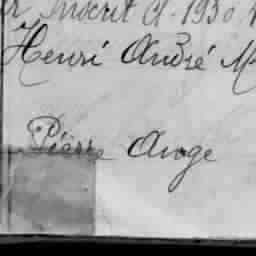 Inscrit cl. 1930
Henri André M
Pierre Aroge